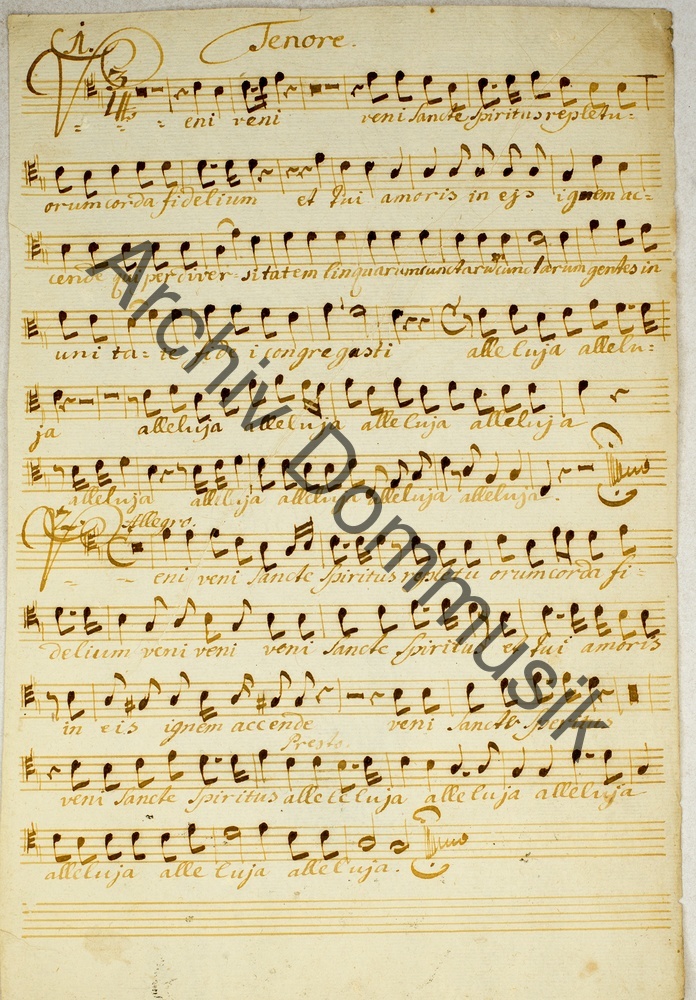 1. Tenore.
Veni veni veni Sancte Spiritus repletu=
orum corda fidelium et tui amoris in ejs ignem ac=
cende qui per diver sitatem linquarum cunctarum cunctarum gentes in
uni ta= te fide i congregasti alleluja allelu=
ja alleluja alleluja alleluja alleluja
alleluja alleluja alleluja alleluja alleluja.
2. Allegro.
Veni veni Sancte Spiritus repletu orum corda fi=
delium veni veni veni Sancte Spiritus et tui amoris
in eis ignem accende veni Sancte Spiritus
Presto.
veni Sancte Spiritus alleleluja alleluja alleluja
alleluja alleluja alleluja.
Archiv Dommusik